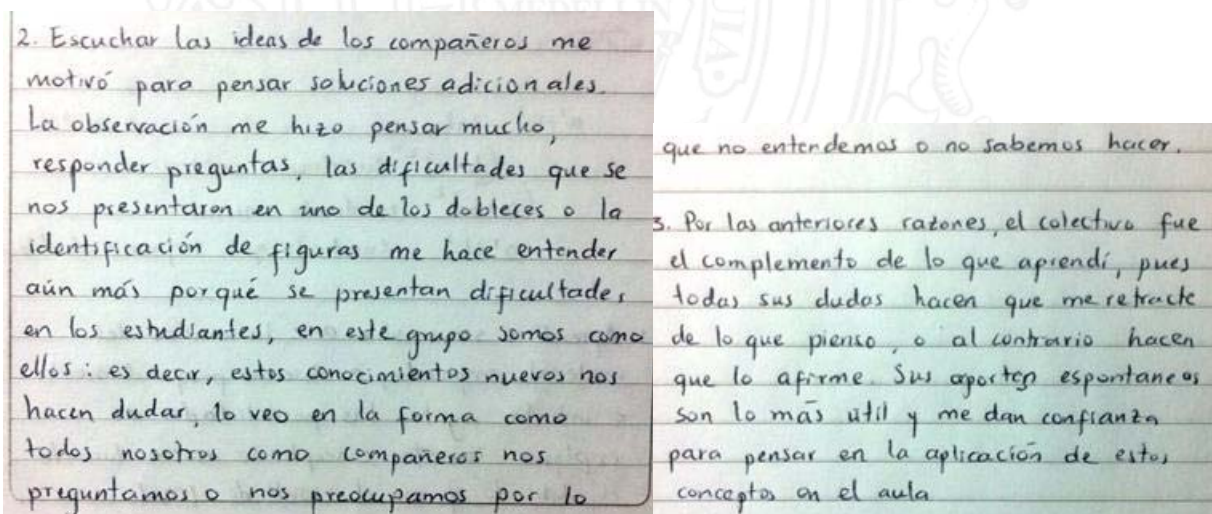 2. Escuchar las ideas de los compañeros me
motivó para pensar soluciones adicionales.
La observación me hizo pensar mucho,
responder preguntas, las dificultades que se
nos presentaron en uno de los dobleces o la
identificación de figuras me hace entender
aún más porqué se presentan dificultades
en los estudiantes, en este grupo somos como
ellos: es decir, estos conocimientos nuevos nos
hacen dudar, lo veo en la forma como
todos nosotros como compañeros nos
preguntamos o nos preocupamos por lo
que no entendemos o no sabemos hacer.
3. Por las anteriores razones, el colectivo fue
el complemento de lo que aprendí, pues
todas sus dudas hacen que me retracte
de lo que pienso, o al contrario hacen
que lo afirme. Sus aportes espontaneos
son lo más util y me dan confianza
para pensar en la aplicación de estos
conceptos en el aula